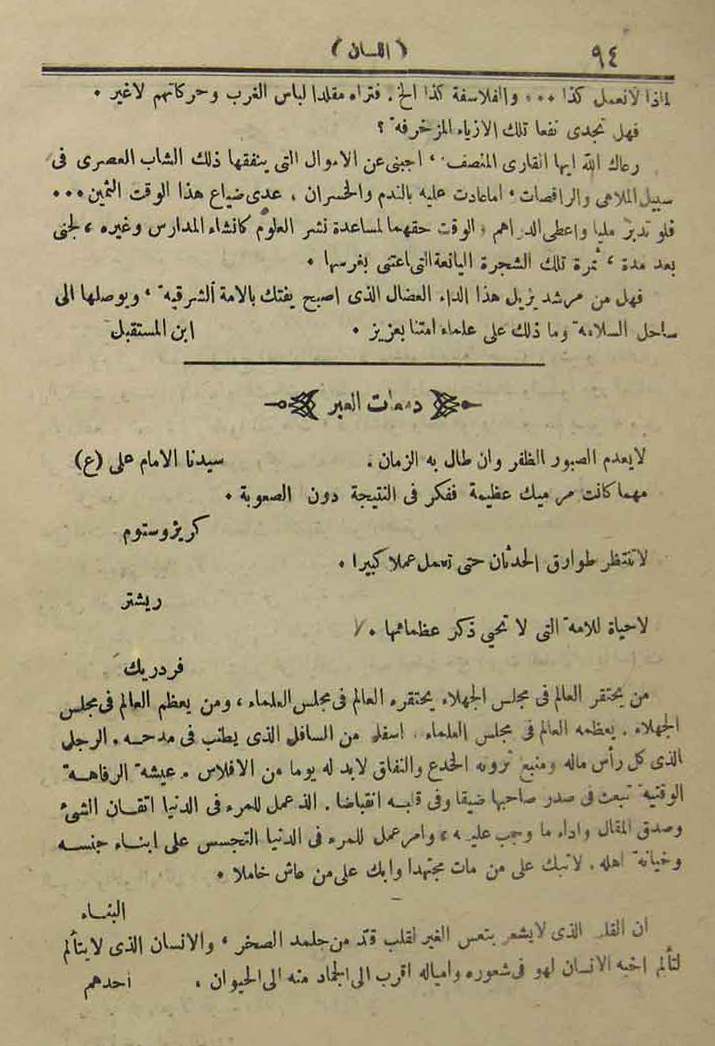 ٩٤
( اللسان )
لماذا لانعمل كذا ٠٠٠ والفلاسفة كذا الخ . فتراه مقلدا لباس الغرب وحركاتهم لاغير .
فهل تجدى نفعا تلك الازياء المزخرفة ؟
رعاك الله ايها القارى المنصف ، اجبنى عن الاموال التى ينفقها ذلك الشاب العصرى فى
سبيل الملاهى والراقصات ، اماعادت عليه بالندم والخسران . عدى ضياع هذا الوقت الثمين ٠٠٠
فلو تدبر مليا واعطى الدراهم والوقت حقهما لمساعدة نشر العلوم كانشاء المدارس وغيره ، لجنى
بعد مدة ، ثمرة تلك الشجرة اليانعة التى اعتنى بغرسها .
فهل من مرشد يزيل هذا الداء العضال الذى اصبح يفتك بالامة الشرقية ، ويوصلها الى
ساحل السلامة وما ذلك على علماء امتنا بعزيز . ابن المستقبل
دمعات العبر
لايعدم الصبور الظفر وان طال به الزمان . سيدنا الامام على (ع)
مهما كانت مراميك عظيمة ففكر فى النتيجة دون الصعوبة .
كريزوستوم
لاتنتظر طوارق الحدثان حتى تعمل عملا كبيرا .
ريشتر
لاحياة للامة التى لا تحيي ذكر عظمائها .
فردريك
من يحتقر العالم فى مجلس الجهلاء يحتقره العالم فى مجلس العلماء ، ومن يعظم العالم فى مجلس
الجهلاء . يعظمه العالم فى مجلس العلماء . اسفل من السافل الذى يطنب فى مدحه . الرجل
الذى كل رأس ماله ومنبع ثروته الخدع والنفاق لابد له يوما من الافلاس . عيشة الرفاهة
الوقتية تبعث فى صدر صاحبها ضيقا وفى قلبه انقباضا . الذ عمل للمرء فى الدنيا اتقان الشئ
وصدق المقال واداء ما وجب عليه ، وامر عمل للمرء فى الدنيا التجسس على ابناء جنسه
وخيانة اهله . لاتبك على من مات مجتهدا وابك على من عاش خاملا .
البناء
ان القلب الذى لايشعر بتعس الغير لقلب قدّ من جلمد الصخر ، والانسان الذى لايتألم
لتألم اخيه الانسان لهو فى شعوره وامياله اقرب الى الجماد منه الى الحيوان . احدهم